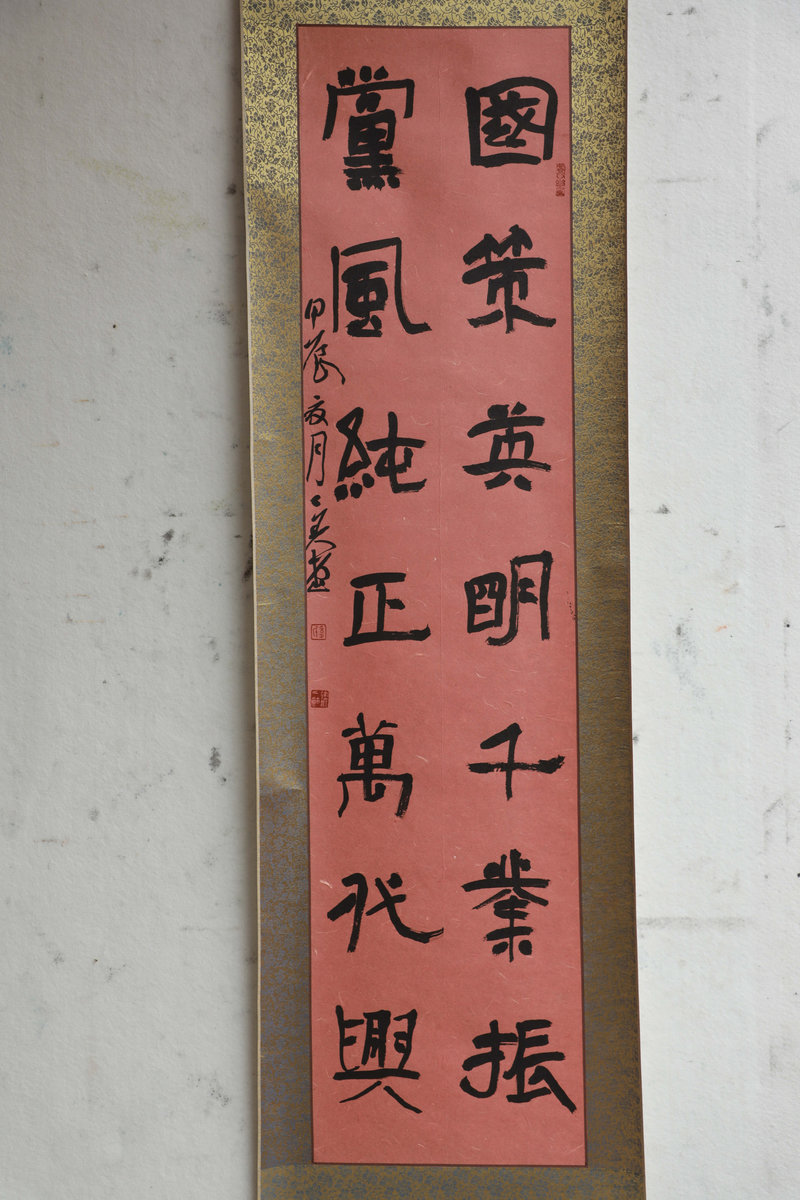 國策英明千業振
黨風純正萬代興
甲辰夏月